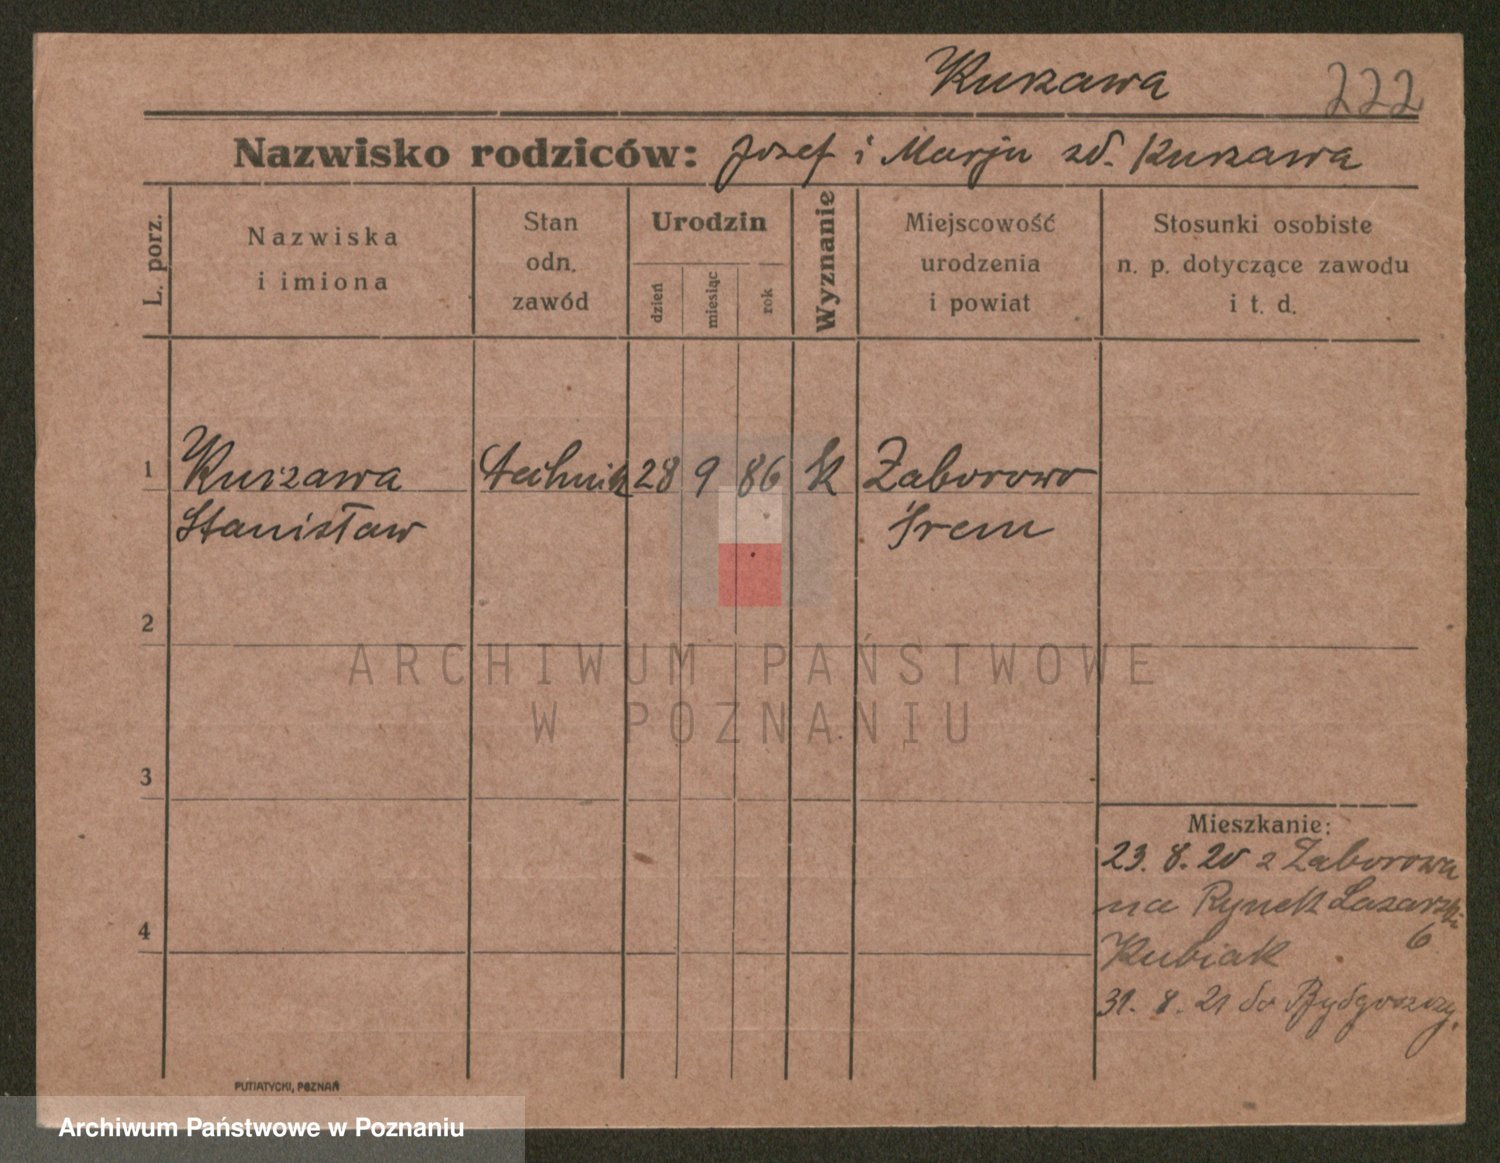 Kurzawa
222
Nazwisko rodziców: Josef i Marju zd. Kurzawa
L. porz.
Nazwiska
i imiona
Stan
odn.
zawód
Urodzin
dzień
miesiąc
rok
Wyznanie
Miejscowość
urodzenia
i powiat
Stosunki osobiste
n. p. dotyczące zawodu
i t. d.
1 Kurzawa technik 28 9 86 k Zaborowo
Stanisław Śrem
2
ARCHIWUM PAŃSTWOWE
W POZNANIU
3
Mieszkanie:
23. 8. 20 z Zaborowa
na Rynek Lazarski
6
4
Kubiak
31. 8. 21 do Bydgoszczy.
PUTIATYCKI, POZNAŃ
Archiwum Państwowe w Poznaniu